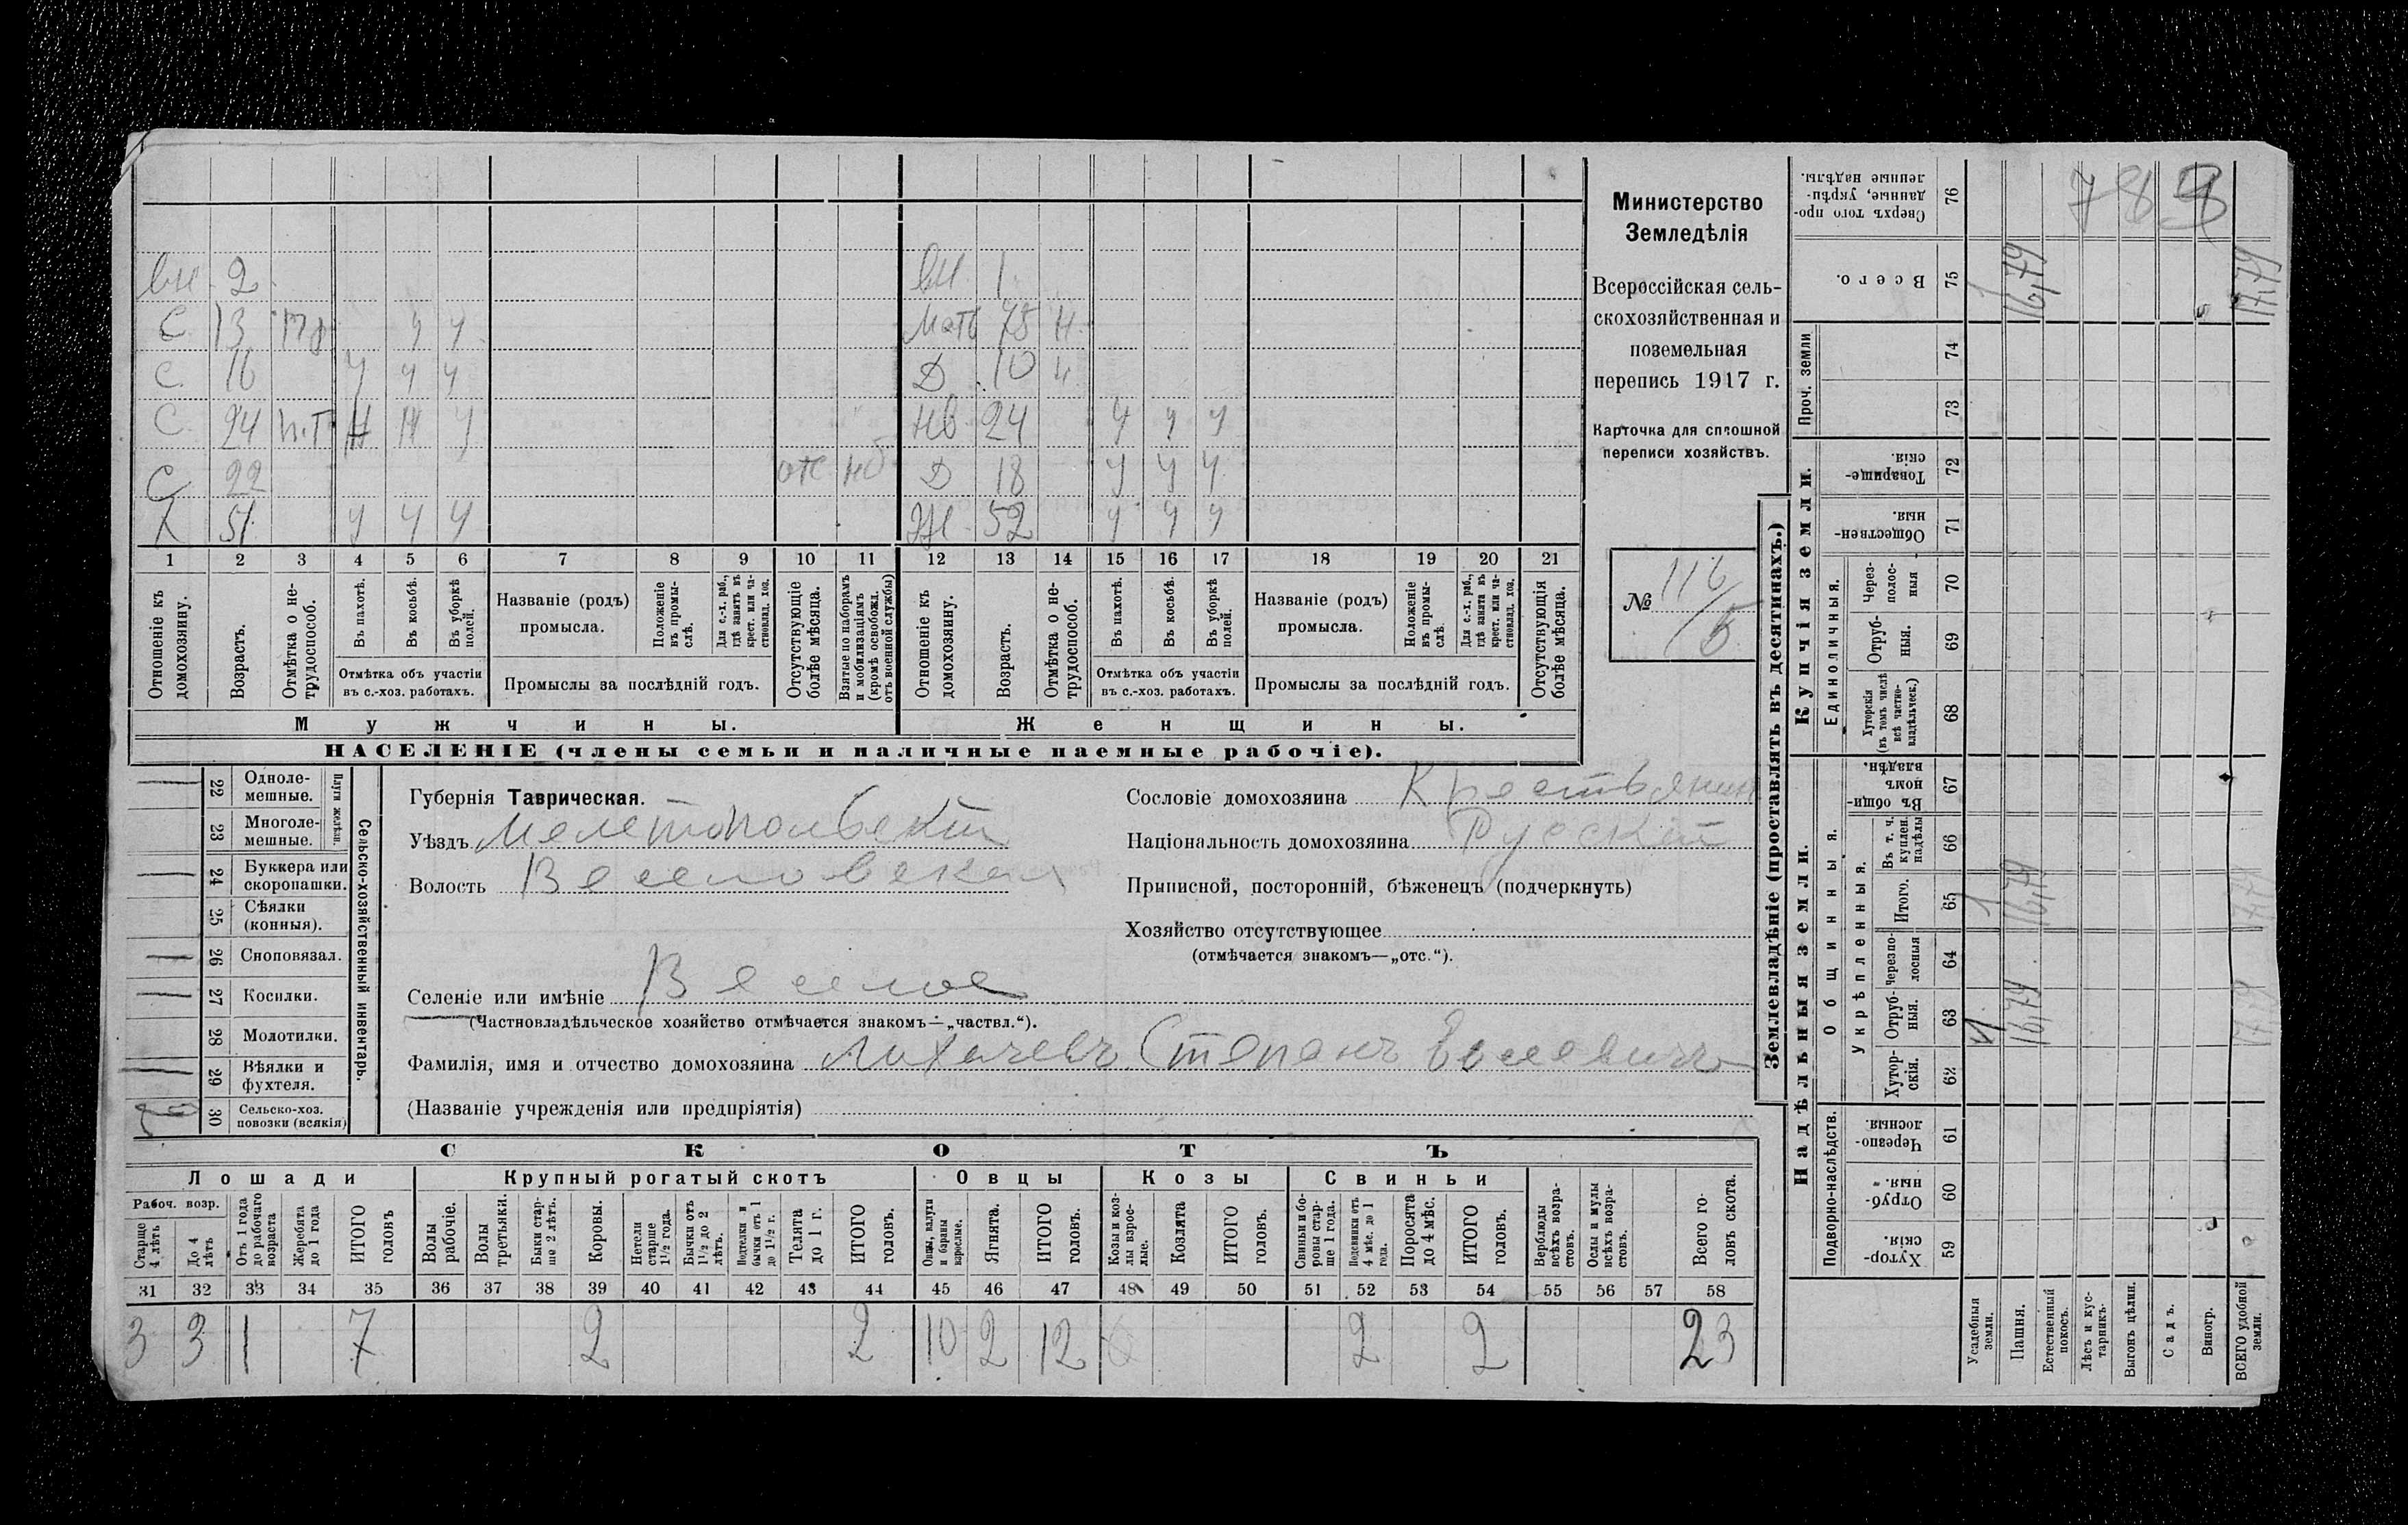 вн. 2 вн. 1
С. 13 ч ч мать 75 н.
С. 16 ч ч ч Д 10 н.
С. 24 н ч нв 24 ч ч ч
С 22 отс нб Д 18 ч ч ч
Х 51 ч ч ч Ж 52 ч ч ч
1 2 3 4 5 6 7 8 9 10 11 12 13 14 15 16 17 18 19 20 21
Отношеніе къ домохозяину.
Возрастъ.
Отмѣтка о нетрудоспособ.
Въ пахотѣ.
Въ косьбѣ.
Въ уборкѣ полей.
Отмѣтка объ участіи
въ с.-хоз. работахъ.
Названіе (родъ)
промысла.
Положеніе въ промыслѣ.
Для с.-х. раб., гдѣ занятъ въ крест. или частновлад. хоз.
Промыслы за послѣдній годъ.
Отсутствующіе болѣе мѣсяца.
Взятые по наборамъ и мобилизаціямъ (кромѣ освобожд. отъ военной службы)
Отношеніе къ домохозяину.
Возрастъ.
Отмѣтка о нетрудоспособ.
Въ пахотѣ.
Въ косьбѣ.
Въ уборкѣ полей.
Отмѣтка объ участіи
въ с.-хоз. работахъ.
Названіе (родъ)
промысла.
Положеніе въ промыслѣ.
Для с.-х. раб., гдѣ занята въ крест. или частновлад. хоз.
Промыслы за послѣдній годъ.
Отсутствующія болѣе мѣсяца.
Мужчины. Женщины.
НАСЕЛЕНІЕ (члены семьи и наличные наемные рабочіе).
Министерство
Земледѣлія
Всероссійская сель-
скохозяйственная и
поземельная
перепись 1917 г.
Карточка для сплошной
переписи хозяйствъ.
№ 116/5
22 Одноле-
мешные.
23 Многоле-
мешные.
Плуги желѣзн.
24 Буккера или
скоропашки.
25 Сѣялки
(конныя).
26 Сноповязал.
27 Косилки.
28 Молотилки.
29 Вѣялки и
фухтеля.
30 Сельско-хоз.
повозки (всякія)
Сельско-хозяйственный инвентарь.
Губернія Таврическая.
Уѣздъ Мелетопольскій
Волость Веселовская
Селеніе или имѣніе Веселое
(Частновладѣльческое хозяйство отмѣчается знакомъ—„частвл.“).
Фамилія, имя и отчество домохозяина Лихачевъ Степанъ
(Названіе учрежденія или предпріятія)
Сословіе домохозяина Крестьянин
Національность домохозяина Русскій
Приписной, посторонній, бѣженецъ (подчеркнуть)
Хозяйство отсутствующее
(отмѣчается знакомъ—„отс.“).
СКОТЪ
Лошади Крупный рогатый скотъ Овцы Козы Свиньи
Рабоч. возр.
Старше 4 лѣтъ
До 4 лѣтъ
Отъ 1 года до рабочаго возраста
Жеребята до 1 года
ИТОГО головъ
Волы рабочіе.
Волы третьяки.
Быки старше 2 лѣтъ.
Коровы.
Нетели старше 1½ года.
Бычки отъ 1½ до 2 лѣтъ.
Подтелки и бычки отъ 1 до 1½ г.
Телята до 1 г.
ИТОГО головъ.
Овцы, валухи и бараны взрослые.
Ягнята.
ИТОГО головъ.
Козы и козлы взрослые.
Козлята
ИТОГО головъ.
Свиньи и боровы старше 1 года.
Подсвинки отъ 4 мѣс. до 1 года.
Поросята до 4 мѣс.
ИТОГО головъ.
Верблюды всѣхъ возрастовъ.
Ослы и мулы всѣхъ возрастовъ.
Всего головъ скота.
31 32 33 34 35 36 37 38 39 40 41 42 43 44 45 46 47 48 49 50 51 52 53 54 55 56 57 58
3 3 1 7 2 2 10 2 12 2 2 23
Землевладѣніе (проставлять въ десятинахъ.)
Надѣльныя земли. Купчія земли. Проч. земли
Подворно-наслѣдств. Общинныя. Укрѣпленныя. Единоличныя.
Хуторскія. 59
Отрубныя. 60
Черезполосныя. 61
Хуторскія. 62
Отрубныя. 63
Черезполосныя 64
Итого. 65
Въ т. ч. куплен. надѣлы 66
Въ общинномъ владѣн. 67
Хуторскія (въ томъ числѣ всѣ частновладѣльческ.) 68
Отрубныя. 69
Черезполосныя 70
Общественныя. 71
Товарищескія. 72
73
74
Всего. 75
Сверхъ того проданные, укрѣпленные надѣлы. 76
Усадебныя земли. 1 1 1
Пашня. 16,79 16,79 16,79
Естественный покосъ.
Лѣсъ и кустарникъ.
Выгонъ цѣлин.
Садъ.
Виногр.
ВСЕГО удобной земли. 17,79 17,79 17,79